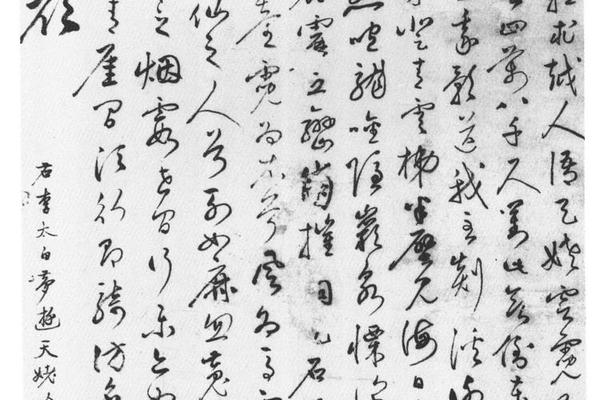 難求越人語天姥雲霓
四萬八千丈對此欲倒東
送我影送我至剡溪謝
登青雲梯半壁見海日
熊咆龍吟殷巖泉慄深
石電立巒崩摧洞天石
臺霓為衣兮風為馬
仙之人兮列如麻忽魂
之烟霞世間行樂亦如
青崖間須行即騎訪名
顏
右李太白夢遊天姥